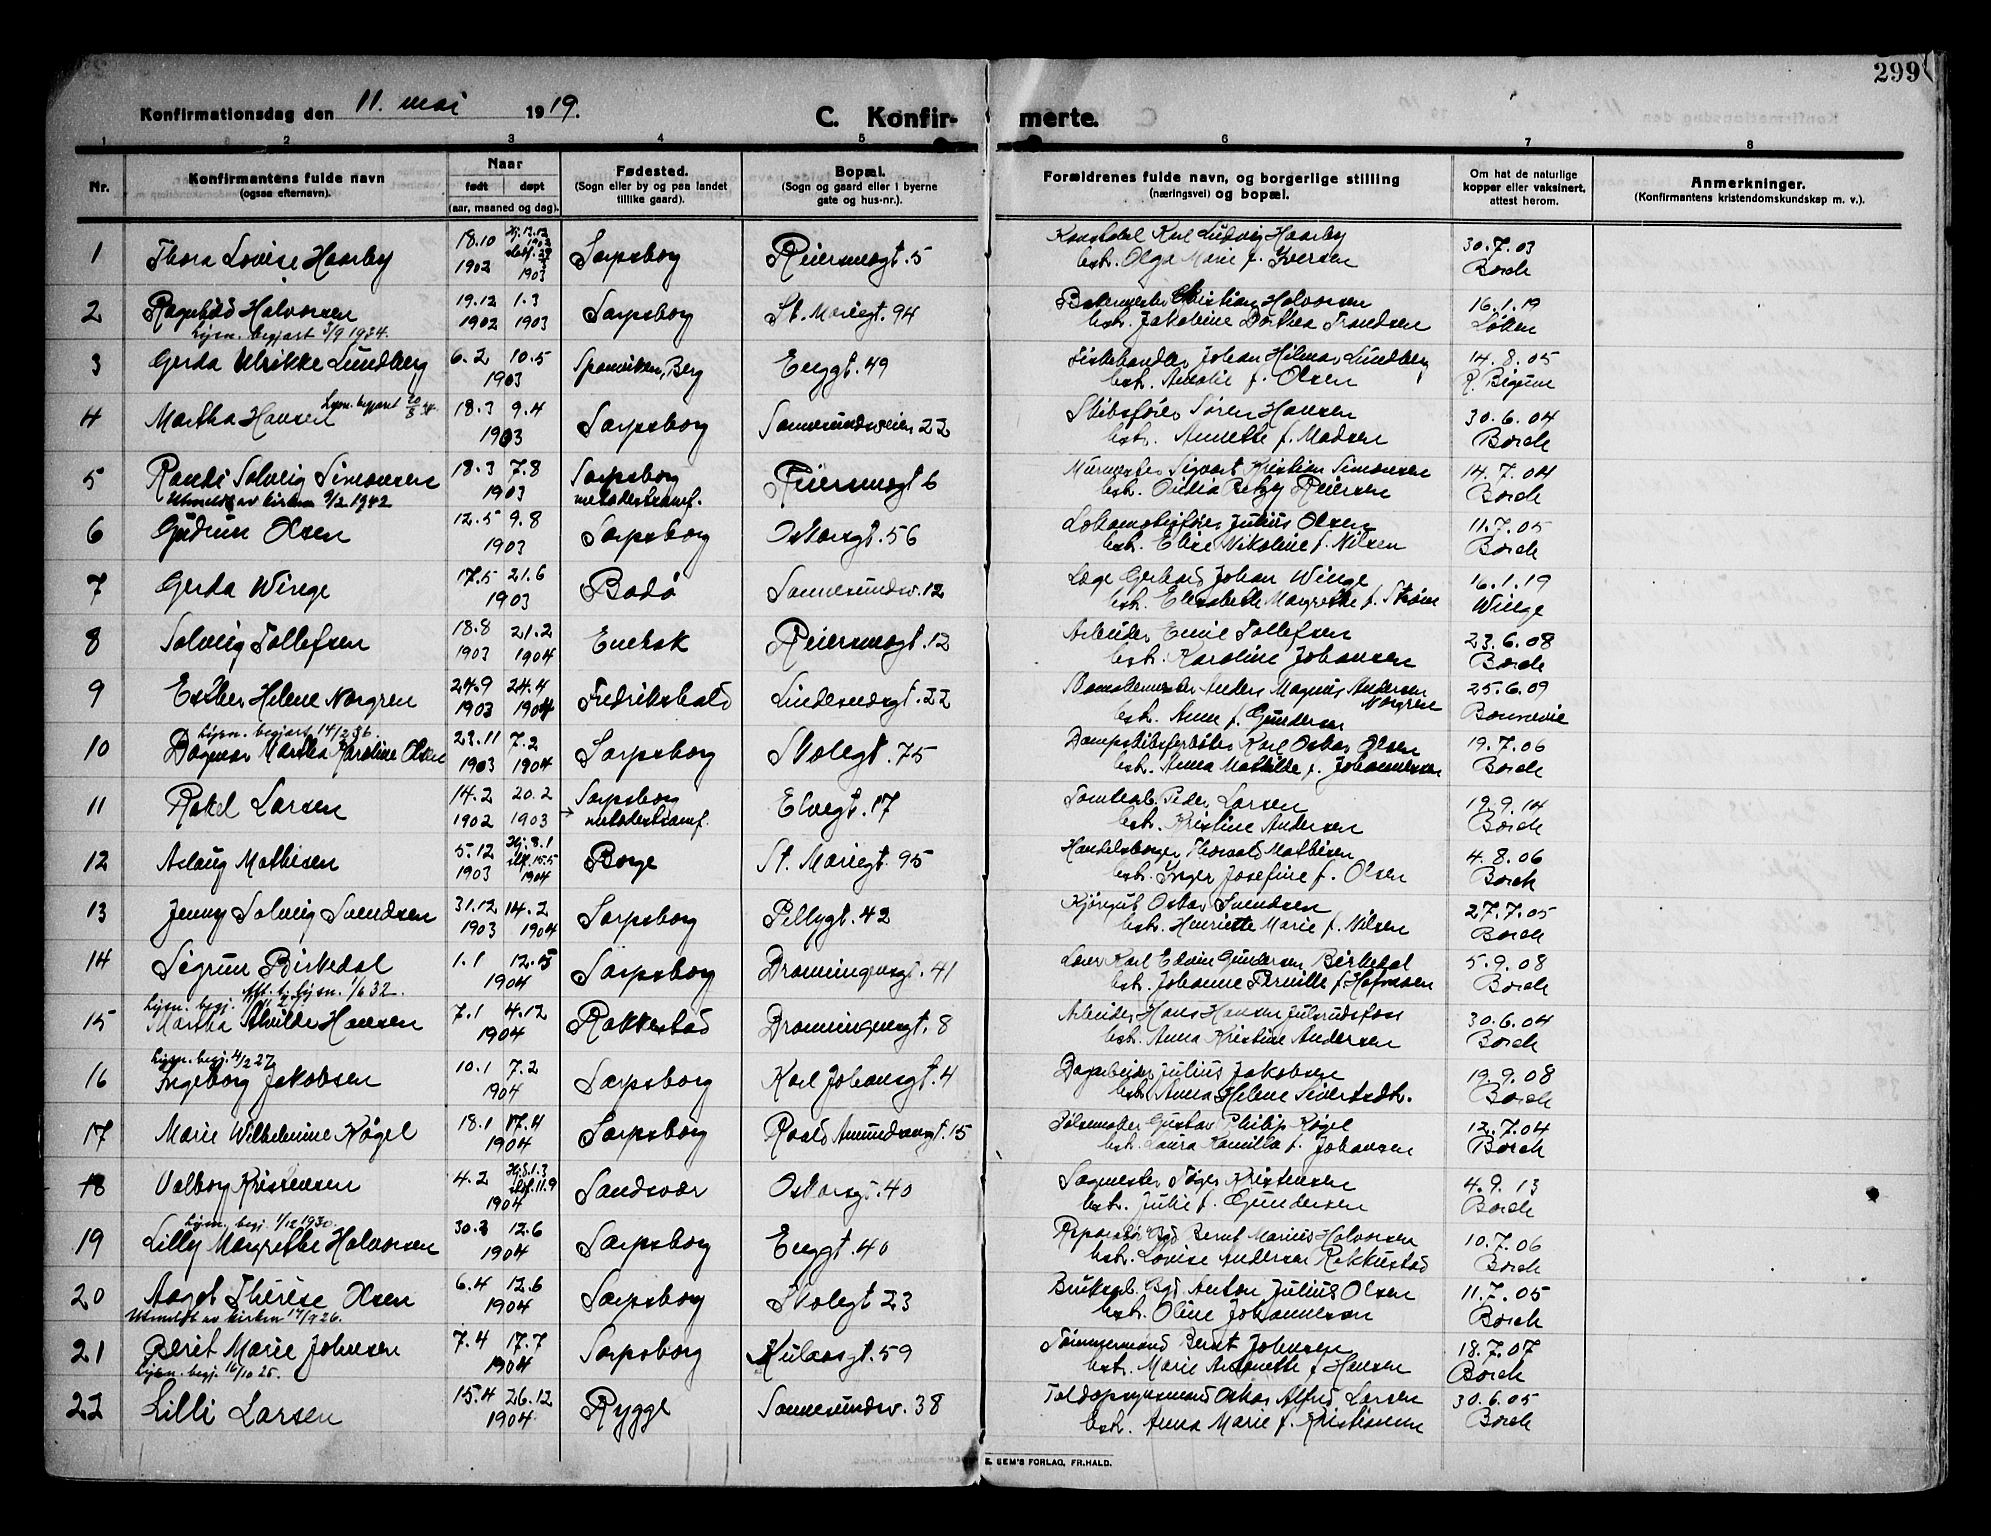 299
Konfirmationsdag den 11. mai 1919.
C. Konfir- merte.
1 2 3 4 5 6 7 8
Nr.
Konfirmantens fulde navn
(ogsaa efternavn).
Naar
født døpt
(aar, maaned og dag).
Fødested.
(Sogn eller by og paa landet
tillike gaard).
Bopæl.
(Sogn og gaard eller i byerne
gate og hus-nr.).
Forældrenes fulde navn, og borgerlige stilling
(næringsvei) og bopæl.
Om hat de naturlige
kopper eller vaksinert,
attest herom.
Anmerkninger.
(Konfirmantens kristendomskundskap m. v.).
1 Thora Lovise Haarby 18.10 1902 Hj. 13.12 1902 1903 Sarpsborg Reiersensgt. 5 Karl Ludvig Haarby 30.7.03
hstr. Olga Marie f. Iversen Borch
2 Ragnhild Halvorsen 19.12 1902 1.3 1903 Sarpsborg St. Mariegt. 94 Bakermester Kristian Halvorsen 16.1.19
Lysn. begjært 3/9 1924. hstr. Jakobine Dorthea Trandsen Løken
3 Gerda Ulrikke Lundberg 6.2 10.5 1903 Sponviken, Berg Enggt. 49 Fiskehandler Johan Hilmar Lundberg 14.8.05
hstr. Amalie f. Olsen
4 Martha Hansen Lysn. begjært 18.3 9.4 1903 Sarpsborg Sannesundsveien 22 Skibsfører Søren Hansen 30.6.04
hstr. Annette f. Madsen Borch
5 Randi Solveig Simonsen 18.3 7.8 1903 Sarpsborg metodestsamf. Reiersensgt 6 Murmester Sigvart Kristian Simonsen 14.7.04
Utmeldt av kirken 9/2 1942 hstr. Betzy Reiersen Borch
6 Gudrun Olsen 12.5 9.8 1903 Sarpsborg Oskarsgt. 56 Lokomotivfører Julius Olsen 11.7.05
hstr. Elise Nikoline f. Nilsen Borch
7 Gerda Winge 17.5 21.6 1903 Bodø Sannesundsv. 12 Læge Gerhard Johan Winge 16.1.19
hstr. Elisabeth Margrethe f. Strøm Winge
8 Solveig Tollefsen 18.8 1903 21.2 1904 Enebak Reiersensgt. 12 Arbeider Emil Tollefsen 23.6.08
hstr. Karoline Johansen Borch
9 Esther Helene Norgren 24.9 1903 24.4 1904 Fredrikshald Lindesundsgt. 22 Anders Magnus Andersen Norgren 25.6.09
hstr. Anna f. Gundersen Bonnevie
Lysn. begjært 14/2 36.
10 Dagmar Martha Karoline Olsen 23.11 1903 7.2 1904 Sarpsborg Skolegt. 75 Dampskibsfyrbøter Karl Oskar Olsen 19.7.06
hstr. Anna Mathilde f. Johannessen Borch
11 Rakel Larsen 14.2 1902 20.2 1903 Sarpsborg metodestsamf. Elvegt. 17 Tomtearb. Peder Larsen 19.9.14
hstr. Kristine Andersen Borch
12 Aslaug Mathisen 5.12 1903 Hj. 8.1 stf. 15.5 1904 Borge St. Mariegt. 95 Handelsborger Thorvald Mathisen 4.8.06
hstr. Inger Josefine f. Olsen Borch
13 Jenny Solveig Svendsen 31.12 1903 14.2 1904 Sarpsborg Pellygt. 42 Kjørgut Oskar Svendsen 27.7.05
hstr. Henriette Marie f. Nilsen Borch
14 Sigrun Birkedal 1.1 12.5 1904 Sarpsborg Dronningensgt. 41 Karl Edvin Gundersen Birkedal 5.9.08
hstr. Johanne Pernille f. Hofmoen Borch
Lysn. begj. Att. t. lysn. 1/6 32.
15 Martha Alvilde Hansen 7.1 4.12 1904 Rakkestad Dronningensgt. 8 Arbeider Hans Hansen Julsrudsfoss 30.6.04
hstr. Anna Kristine Andersen Borch
Lysn. begj. 4/2 27
16 Ingeborg Jakobsen 10.1 7.2 1904 Sarpsborg Karl Johansgt. 4 Dagarbeider Julius Jakobsen 19.9.08
hstr. Anna Helene Sivertsdtr. Borch
17 Marie Wilhelmine Køgel 18.1 17.4 1904 Sarpsborg Roald Amundsensgt. 15 Pølsemaker Gustav Philip Køgel 12.7.04
hstr. Laura Kamilla f. Johansen Borch
18 Valborg Kristensen 4.2 Hj. 8.1.3 stf. 11.9 1904 Sandsvær Oskarsgt. 40 Sagmester Tøger Kristensen 4.9.13
hstr. Julie f. Gundersen Borch
Lysn. begj. 1/12 1930.
19 Lilly Margrethe Halvorsen 30.3 12.6 1904 Sarpsborg Enggt. 40 Reparatør Bernt Marius Halvorsen 10.7.06
hstr. Lovise Andersen Rakkestad Borch
20 Aagot Therese Olsen 6.4 12.6 1904 Sarpsborg Skolegt 23 Bruksarb. Anton Julius Olsen 11.7.05
Utmeldt av kirken 17/9 26. hstr. Oline Johannessen Borch
21 Berit Marie Johnsen 7.4 17.7 1904 Sarpsborg Kulaasgt. 59 Tømmermand Berdt Johnsen 18.7.07
Lysn. begj. 16/10 25. hstr. Marie Antonette f Hansen Borch
22 Lilli Larsen 15.4 26.12 1904 Rygge Sannesundsv. 38 Toldopsynsmand Oskar Alfred Larsen 30.6.05
hstr. Anna Marie f. Kristiansen Borch
E. SEM'S FORLAG, FR.HALD.